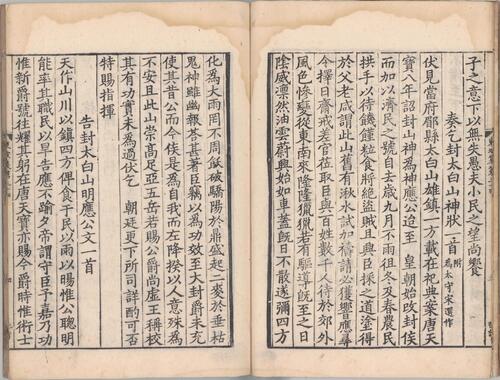 子之意下以無失愚夫小民之望尚饗
奏乞封太白山神狀一首附為太守宋選作
伏見當府郿縣太白山雄鎮一方載在祀典案唐天
寶八年詔封山神為神應公迨至皇朝始改封侯
而加以濟民之號自去歲九月不雨徂冬及春農民
拱手以待饑饉粒食將絕盜賊且興臣採之道塗得
於父老咸謂此山舊有湫水試加禱請必獲響應尋
令擇日齋戒差官莅取臣與百姓數千人待於郊外
風色慘變從東南來隆隆獵獵若有驅導既至之日
陰威凜然油雲蔚興始如車蓋既日不散遂彌四方
化為大雨罔不周飫破驕陽於鼎盛起二麥於垂枯
鬼神雖幽報荅甚著臣竊以為功效至大封爵未充
使其昔公而今侯是為自我而左降揆以人意殊為
不安且此山崇高足亞五岳若賜公爵尚虛王稱校
其有功實未為過伏乞朝廷更下所司詳酌可否
特賜指揮
告封太白山明應公文一首
天作山川以鎮四方俾食于民以雨以暘惟公聰明
能率其職民以旱告應不踰夕帝謂守臣予嘉乃功
惟新爵號往耀其躬在唐天寶亦賜今爵時惟術士